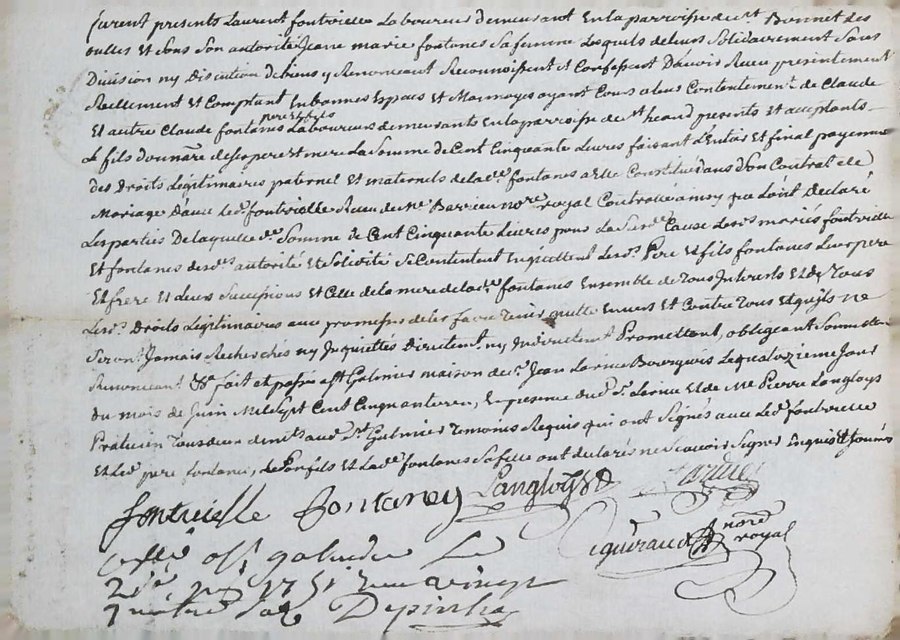 furent presents Laurent fontvielle Laboureur demeurant En la parroisse de st Bonnet des
oulles Et sous son autorité Jeane marie fontanes sa femme Lesquels de leurs solidairement sans
Division ny Discution de biens y Renonceant Reconnoissent et Confessent D'avoir Receu presentement
Reellement et Comptant En bonnes Especes Et Monnoyes ayant Cours a leur Contentement de Claude
pere et fils
Et autre Claude fontanes Laboureurs demeurants En la parroisse de st heand presents et acceptants
Le fils donnāre de ses pere et mere La somme de Cent Cinquante Livres faisant L'entier Et final payement
des Droits Legitimaires paternel Et maternels de lade fontanes a Elle Constitués dans son Contrat de
Mariage D'avec led. fontvielle Receu de Me Barrieu nore royal Controllé ainsy que L'ont declaré
Les parties De laquelle de somme de Cent Cinquante Livres pour La susde Cause Lesds mariés fontvielle
Et fontanes desds autorité Et solidité se Contentent En quittent Lesds Pere et fils fontanes Leurs pere
Et frere Et Leurs successions Et Celle de la mere de lade fontanes Ensemble de tous Interests Et de tous
Lesds Droits Legitimaires avec promesse de les faire tenir quitte Envers Et Contre tous Et quils ne
seront Jamais Recherchés ny Inquiettés Directemt ny Indirectement Promettant, obligeant soumettant
Renonceant. fait et passé a st Galmier maison de sr Jean Larue Bourgeois Le quatorzieme Jour
du mois de Juin Mil sept Cent Cinquante un, En presence dud. Sr Larue Et de Me Pierre Langloys
Praticien tous deux demts aud. St Galmier temoins Requis qui ont signés avec led. fontvielle
Et led. pere fontanes, Le son fils Et lade fontanes sa fille ont declarés ne scavoir signer Enquis Et sommés
fontvielle fontaney Langloys Larue
galmier Le
nore
royal
1751 Receu vingt
quatre sols